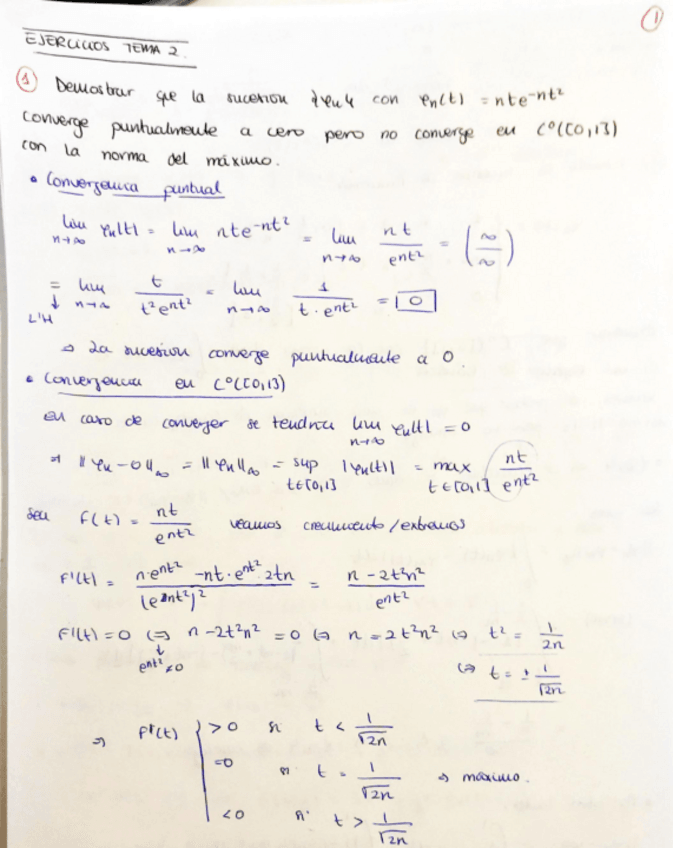 1
EJERCICIOS TEMA 2.
1 Demostrar que la sucesion {φn} con φn(t) = nte^-nt²
converge puntualmente a cero pero no converge en C⁰([0,1])
con la norma del máximo.
• Convergencia puntual
lim n→∞ φn(t) = lim n→∞ nte^-nt² = lim n→∞ nt/e^nt² = (∞/∞)
= L'H lim n→∞ t/t²e^nt² = lim n→∞ 1/t·e^nt² = 0
⇒ La sucesion converge puntualmente a 0
• Convergencia en C⁰([0,1])
en caso de converger se tendria lim n→∞ φn(t) = 0
⇒ ‖φn-0‖∞ = ‖φn‖∞ = sup t∈[0,1] |φn(t)| = max t∈[0,1] nt/e^nt²
sea f(t) = nt/e^nt² veamos crecimiento/extremos
f'(t) = n·e^nt² - nt·e^nt²·2tn/(e^nt²)² = n-2t²n²/e^nt²
f'(t)=0 ⇔ n-2t²n² = 0 ⇔ n = 2t²n² ⇔ t² = 1/2n
e^nt² ≠ 0 ⇔ t = ± 1/√2n
⇒ f'(t) { >0 si t < 1/√2n
=0 si t = 1/√2n ⇒ máximo.
<0 si t > 1/√2n